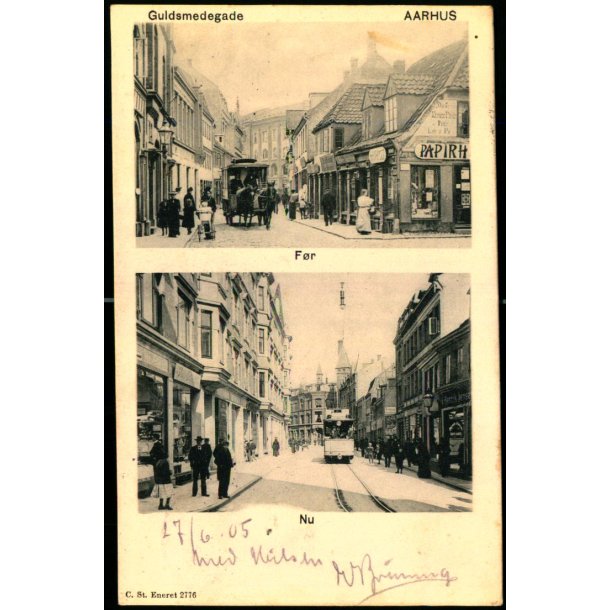 Guldsmedegade AARHUS
PAPIRH
Før
Nu
17/6 05
Med Hilsen
C. St. Eneret 2776